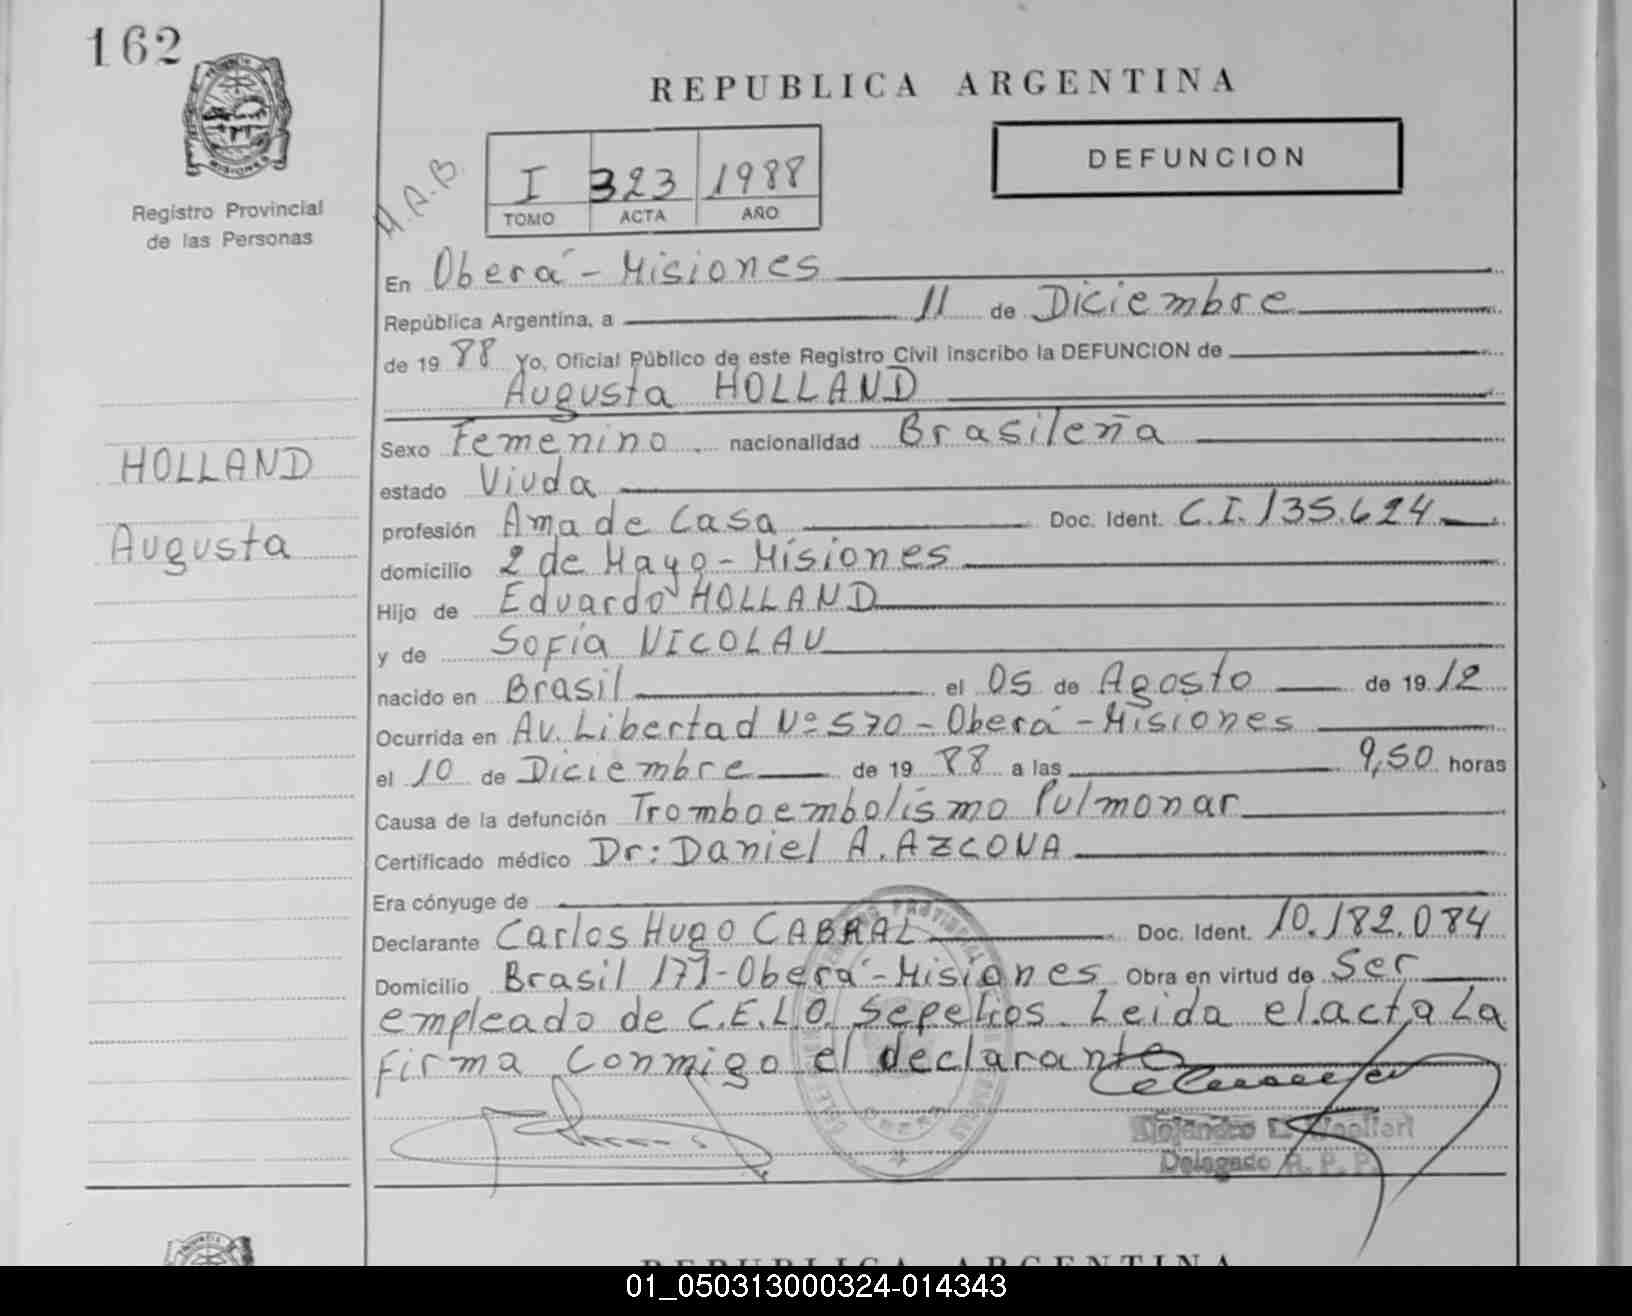 162
PROVINCIA DE MISIONES
Registro Provincial
de las Personas
HOLLAND
Augusta
REPUBLICA ARGENTINA
DEFUNCION
I 323 1988
TOMO ACTA AÑO
En Oberá - Misiones
República Argentina, a 11 de Diciembre
de 19 88 Yo, Oficial Público de este Registro Civil inscribo la DEFUNCION de
Augusta HOLLAND
Sexo Femenino nacionalidad Brasileña
estado Viuda
profesión Ama de Casa Doc. Ident. C.I. 135.624
domicilio 2 de Mayo - Misiones
Hijo de Eduardo HOLLAND
y de Sofía NICOLAU
nacido en Brasil el 05 de Agosto de 19 12
Ocurrida en Av. Libertad Nº 570 - Oberá - Misiones
el 10 de Diciembre de 19 88 a las 9,50 horas
Causa de la defunción Tromboembolismo Pulmonar
Certificado médico Dr: Daniel A. AZCONA
Era cónyuge de
Declarante Carlos Hugo CABRAL Doc. Ident. 10.182.084
Domicilio Brasil 177 - Oberá - Misiones Obra en virtud de Ser
empleado de C.E.L.O. Sepelios. Leida el acta La
firma conmigo el declarante
Delegado R. P. P.
REPUBLICA ARGENTINA
01_050313000324-014343